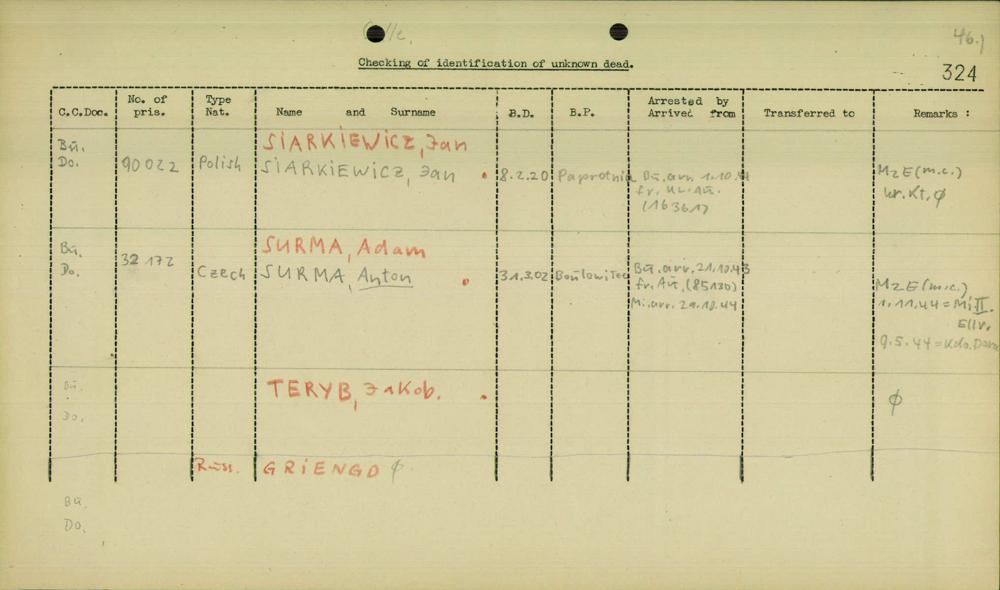 46.)
Checking of identification of unknown dead.
324
C.C.Doc. No. of pris. Type Nat. Name and Surname B.D. B.P. Arrested by Arrived from Transferred to Remarks :
Bü. SIARKIEWICZ, Jan
Do. 90022 Polish SIARKIEWICZ, Jan 8.2.20 Paprotnia Bü. arr. 1.10.44 MzE (m.c.)
fr. Au. Kr. Kt. ø
(163617)
Bü. SURMA, Adam
Do. 32172 Czech SURMA, Anton 31.3.02 Bü. arr. 21.10.43
fr. Au. (85130) MzE (m.c.)
Mi. arr. 29.10.44 1.11.44 = Mi II.
Ellr.
9.5.44 = Kdo. Dora
Bü. TERYB, Jakob. ø
Do.
Russ. GRIENGO ø
Bü.
Do.